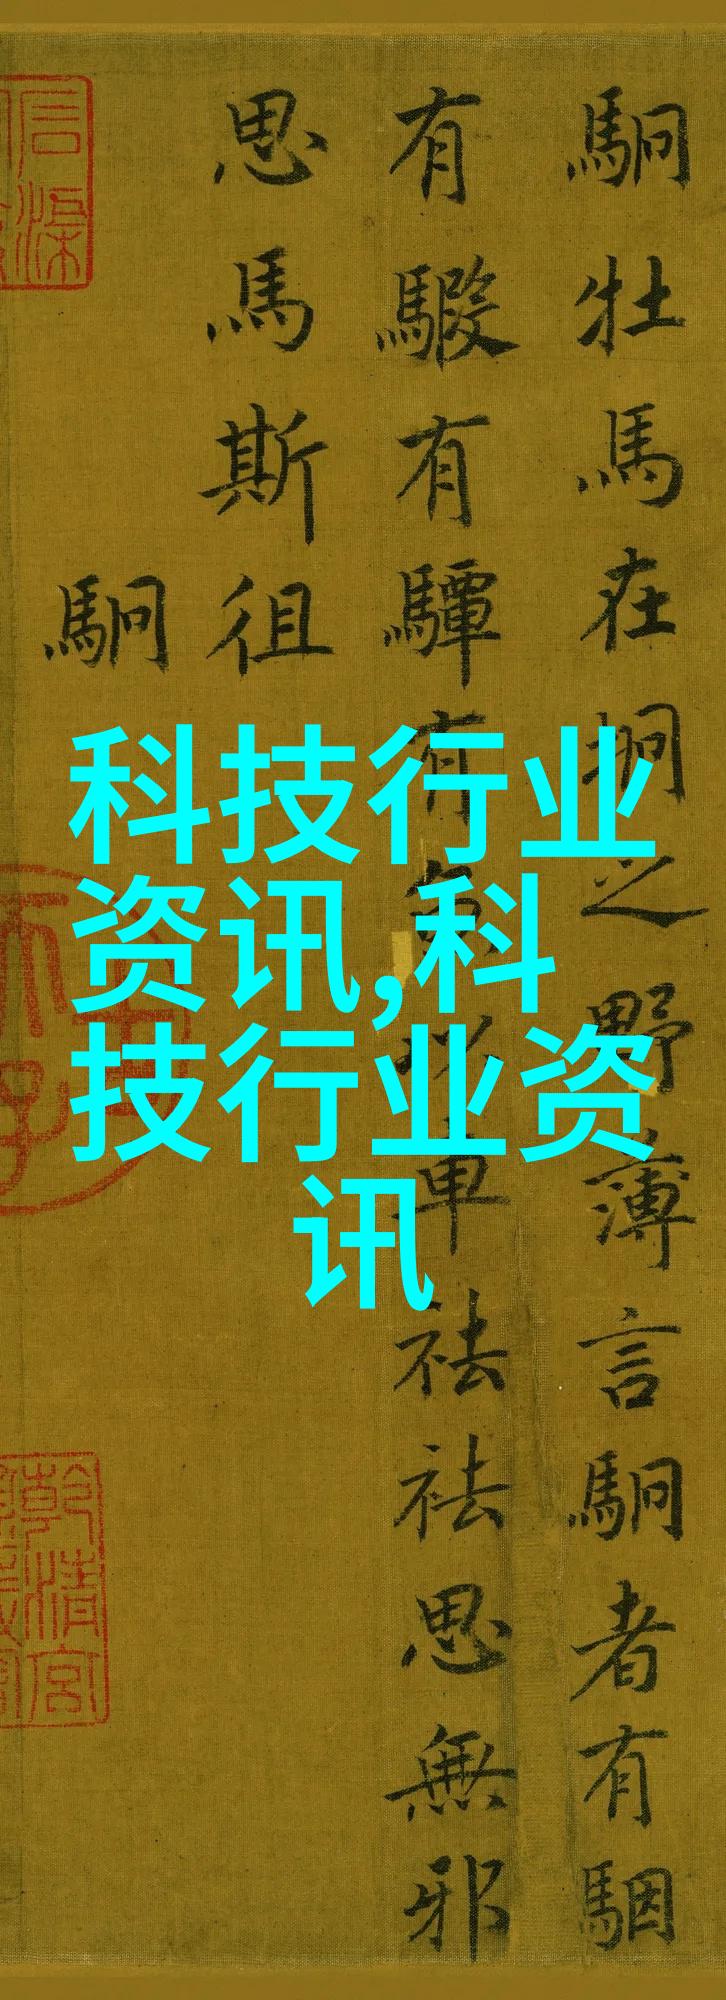 駉牡馬在坰之野薄言駉者有駰
有騢有驔有魚以車祛祛思無邪
思馬斯徂
駉
科技行业
资讯,科
技行业资
讯
乾清宮